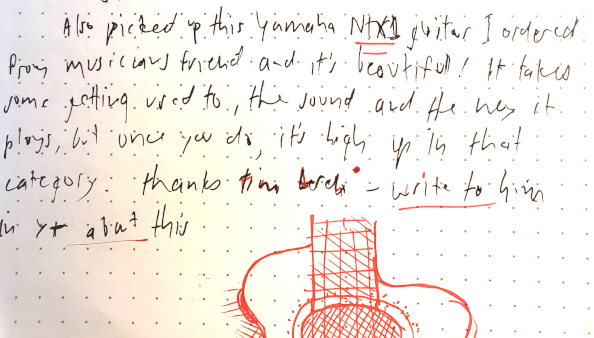 Also picked up this Yamaha NTX1 guitar I ordered
from musicians friend and it's beautiful! It takes
some getting used to, the sound and the way it
plays, but once you do, it's high up in that
category. thanks tim - write to him
in yt about this